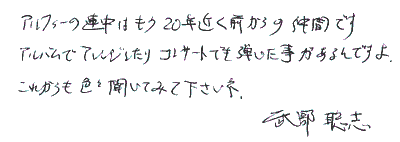 アルフィーの連中はもう20年近く前からの仲間です
アルバムでアレンジしたりコンサートでも弾いた事があるんですよ.
これからも色々聞いてみて下さいネ.
武部聡志